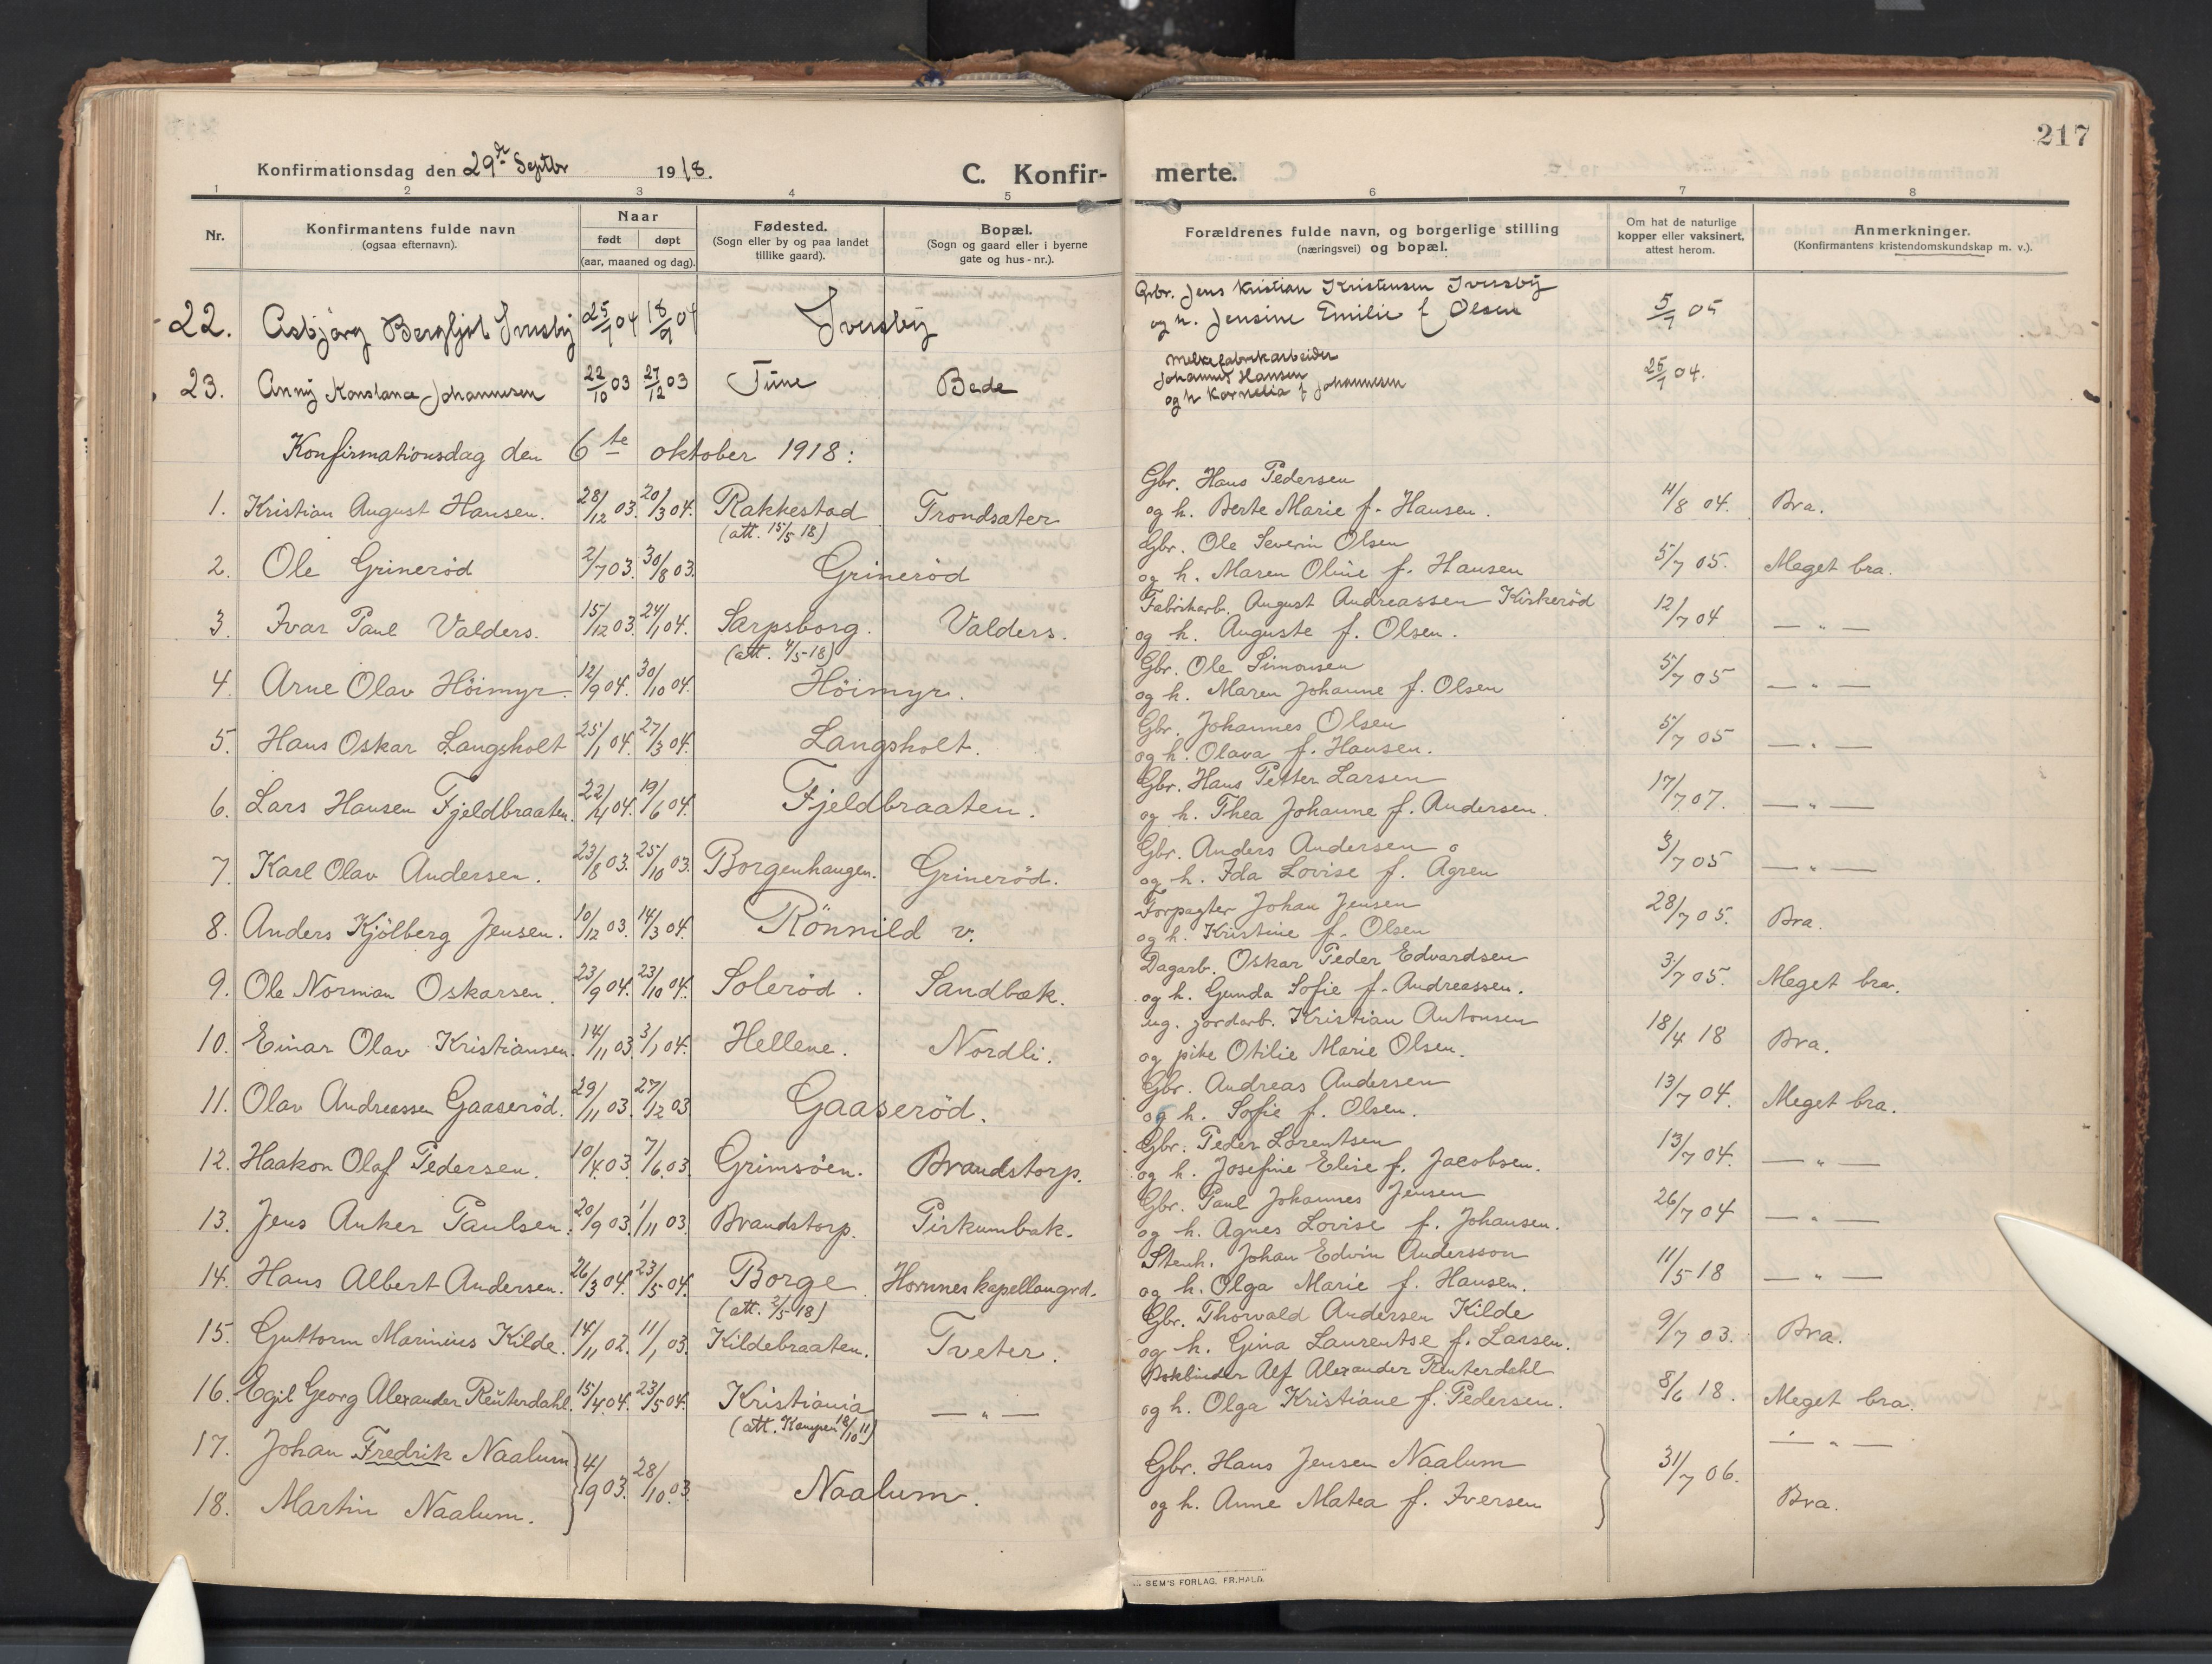 217
Konfirmationsdag den 29de Septbr 1918. C. Konfir- merte.
1 2 3 4 5 6 7 8
Nr. Konfirmantens fulde navn (ogsaa efternavn). Naar født døpt (aar, maaned og dag). Fødested. (Sogn eller by og paa landet tillike gaard). Bopæl. (Sogn og gaard eller i byerne gate og hus-nr.). Forældrenes fulde navn, og borgerlige stilling (næringsvei) og bopæl. Om hat de naturlige kopper eller vaksinert, attest herom. Anmerkninger. (Konfirmantens kristendomskundskap m. v.).
Gbr. Jens Kristian Kristensen Iversby
22. Asbjørg Bergljot Iversby 25/7 04 18/9 04 Iversby og h. Jensine Emilie f Olsen 5/7 05
Melkefabrikarbeider
Johannes Hansen
23. Anny Konstance Johannesen 22/10 03 27/12 03 Tune Bede og h Kornelia f Johannesen 25/7 04.
Konfirmationsdag den 6te oktober 1918:
Gbr. Hans Pedersen
1. Kristian August Hansen. 28/12 03. 20/3 04. Rakkestad Trondsæter og h. Berte Marie f. Hansen. 11/8 04. Bra.
(att. 15/5 18)
Gbr. Ole Severin Olsen
2. Ole Grinerød 2/7 03. 30/8 03. Grinerød og h. Maren Oline f. Hansen 5/7 05. Meget bra.
Fabrikarb. August Andreassen Kirkerød
3. Ivar Paul Valders. 15/12 03. 24/1 04. Sarpsborg. Valders. og h. Auguste f. Olsen. 12/7 04 — " —
(att. 4/5-18)
Gbr. Ole Simonsen
4. Arne Olav Höimyr. 12/9 04. 30/10 04. Höimyr. og h. Maren Johanne f. Olsen 5/7 05 — " —
Gbr. Johannes Olsen
5. Hans Oskar Langsholt 25/1 04. 27/3 04. Langsholt. og h. Olava f. Hansen. 5/7 05 — " —
Gbr. Hans Petter Larsen
6. Lars Hansen Fjeldbraaten. 22/4 04. 19/6 04. Fjeldbraaten. og h. Thea Johanne f. Andersen. 17/7 07. — " —
Gbr. Anders Andersen
7. Karl Olav Andersen. 23/8 03. 25/10 03. Borgenhaugen. Grinerød. og h. Ida Lovise f. Ågren 3/7 05 — " —
Forpagter Johan Jensen
8. Anders Kjölberg Jensen. 10/12 03. 14/3 04. Rönnild v. og h. Kristine f. Olsen 28/7 05. Bra.
Dagarb. Oskar Peder Edvardsen
9. Ole Norman Oskarsen. 23/9 04. 23/10 04. Solerød. Sandbæk. og h. Gunda Sofie f. Andreassen. 3/7 05. Meget bra.
ug. jordarb. Kristian Antonsen
10. Einar Olav Kristiansen. 14/11 03 3/1 04. Hellene. Nordli. og pike Otilie Marie Olsen. 18/4 18 Bra.
Gbr. Andreas Andersen
11. Olav Andreassen Gaaserød. 29/11 03. 27/12 03 Gaaserød. og h. Sofie f. Olsen. 13/7 04. Meget bra.
Gbr. Peder Lorentsen
12. Haakon Olaf Pedersen. 10/4 03 7/6 03. Grimsöen. Brandstorp. og h. Josefine Elise f. Jacobsen. 13/7 04. — " —
Gbr. Paul Johannes Jensen
13. Jens Anker Paulsen. 20/9 03. 1/11 03. Brandstorp. Pirkumbæk. og h. Agnes Lovise f. Johansen. 26/7 04 — " —
Stenh. Johan Edvin Andersson
14. Hans Albert Andersen. 26/3 04. 23/5 04. Borge. Hornneskapellangrd. og h. Olga Marie f. Hansen. 11/5 18 — " —
(att. 2/5 18)
Gbr. Thorvald Andersen Kilde
15. Guttorm Marinius Kilde. 14/11 02. 11/1 03. Kildebraaten. Tveter. og h. Gina Laurentse f. Larsen. 9/7 03. Bra.
Bokbinder Alf Alexander Reuterdahl
16. Egil Georg Alexander Reüterdahl. 15/4 04. 23/5 04. Kristiania — " — og h. Olga Kristiane f. Pedersen. 8/6 18. Meget bra.
(att. Kampen 18/10 11)
17. Johan Fredrik Naalum } 4/9 03. 28/10 03. Naalum. Gbr. Hans Jensen Naalum } 31/7 06. — " —
18. Martin Naalum. og h. Anne Matea f. Iversen Bra.
SEM'S FORLAG, FR.HALD.